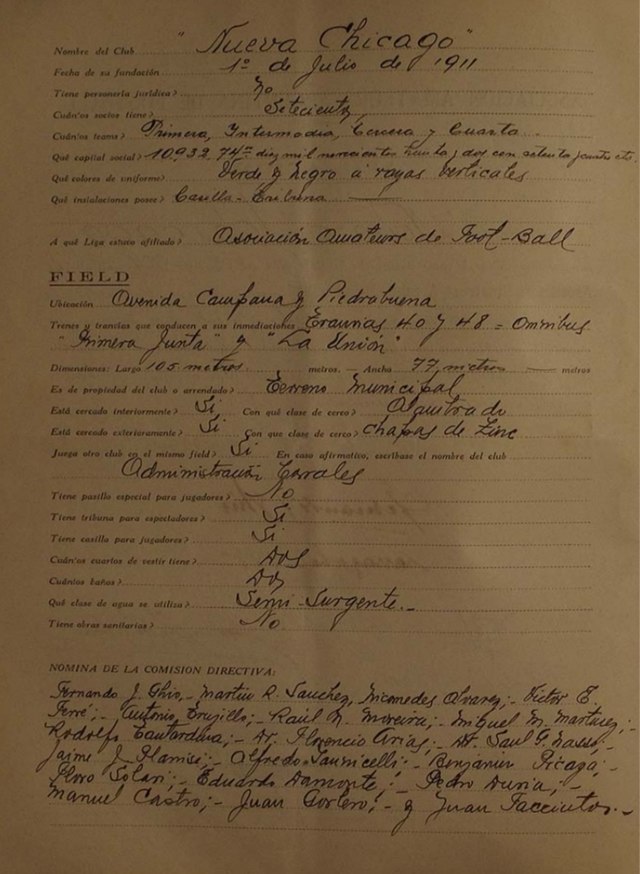 Nombre del Club "Nueva Chicago"
Fecha de su fundación 1º de Julio de 1911
Tiene personería jurídica? No
Cuántos socios tiene? Setecientos
Cuántos teams? Primera, Intermedia, Tercera y Cuarta
Qué capital social? 10.932,74 diez mil novecientos treinta y dos con setenta y cuatro cts.
Qué colores de uniforme? Verde y Negro a rayas verticales
Qué instalaciones posee? Casilla - Tribuna
A qué Liga estuvo afiliado? Asociación Amateurs de Foot-Ball
FIELD
Ubicación Avenida Campana y Piedrabuena
Trenes y tranvías que conducen a sus inmediaciones Tranvias 40 y 48 = Omnibus
"Primera Junta" y "La Unión"
Dimensiones: Largo 105 metros metros. - Ancho 77 metros metros
Es de propiedad del club o arrendado? Terreno Municipal
Está cercado interiormente? Si Con qué clase de cerco? Alambrado
Está cercado exteriormente? Si Con que clase de cerco? Chapas de Zinc
Juega otro club en el mismo field? Si En caso afirmativo, escríbase el nombre del club
Administración Corrales
Tiene pasillo especial para jugadores? No
Tiene tribuna para espectadores? Si
Tiene casilla para jugadores? Si
Cuántos cuartos de vestir tiene? Dos
Cuántos baños? Dos
Qué clase de agua se utiliza? Semi-Surgente.-
Tiene obras sanitarias? No
NOMINA DE LA COMISION DIRECTIVA:
Fernando J. Ghio,- Martin R. Sanchez, Nicomedes Alvarez;- Victor E.
Ferré;- Antonio Trujillo;- Raúl N. Moreira;- Miguel M. Martinez;-
Rodolfo;- Dr. Florencio Arias;- Dr. Saul G.
Jaime J.;- Alfredo;- Benjamin Picaga;-
Floro Solari;- Eduardo Damonte;- Pedro;-
Manuel Castro;- Juan;- y Juan